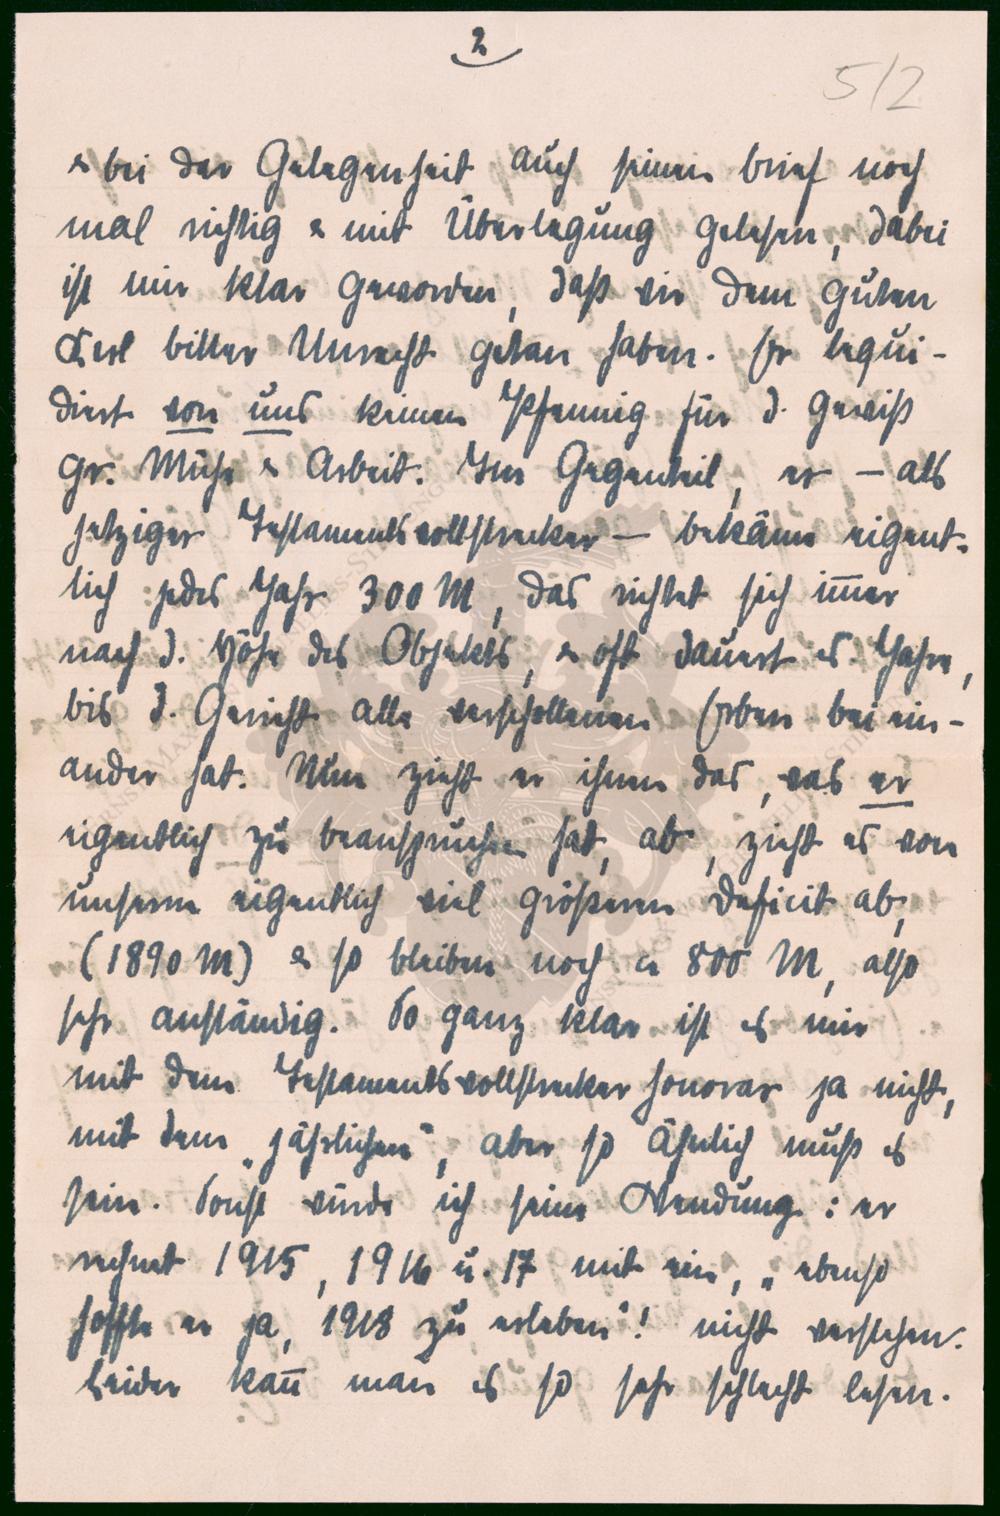 2
5/2
& bei der Gelegenheit auch seinen brief noch
mal richtig & mit Überlegung gelesen, dabei
ist mir klar geworden, daß wir dem guten
Kerl bitter Unrecht getan haben. Er liqui-
diert von uns keinen Pfennig für d. gewiß
gr. Mühe & Arbeit. Im Gegenteil, er – als
jetziger Testamentsvollstrecker – bekäme eigent-
lich jedes Jahr 300 M, das richtet sich im̄er
nach d. Höhe des Objekts, & oft dauert es Jahre,
bis d. Gericht alle verschollenen Erben bei ein-
ander hat. Nun zieht er ihnen das, was er
eigentlich zu beanspruchen hat, ab, zieht es von
unserm eigentlich viel größeren Deficit ab,
(1890 M) & so bleiben noch ca 800 M, also
sehr anständig. So ganz klar ist es mir
mit dem Testamentsvollstrecker honorar ja nicht,
mit dem „jährlichen“, aber so ähnlich muß es
sein. Sonst würde ich seine Wendung: er
rechnet 1915, 1916 u. 17 mit ein, „ebenso
hoffte er ja, 1918 zu erleben“! nicht verstehen.
Leider kan̄ man es so sehr schlecht lesen.